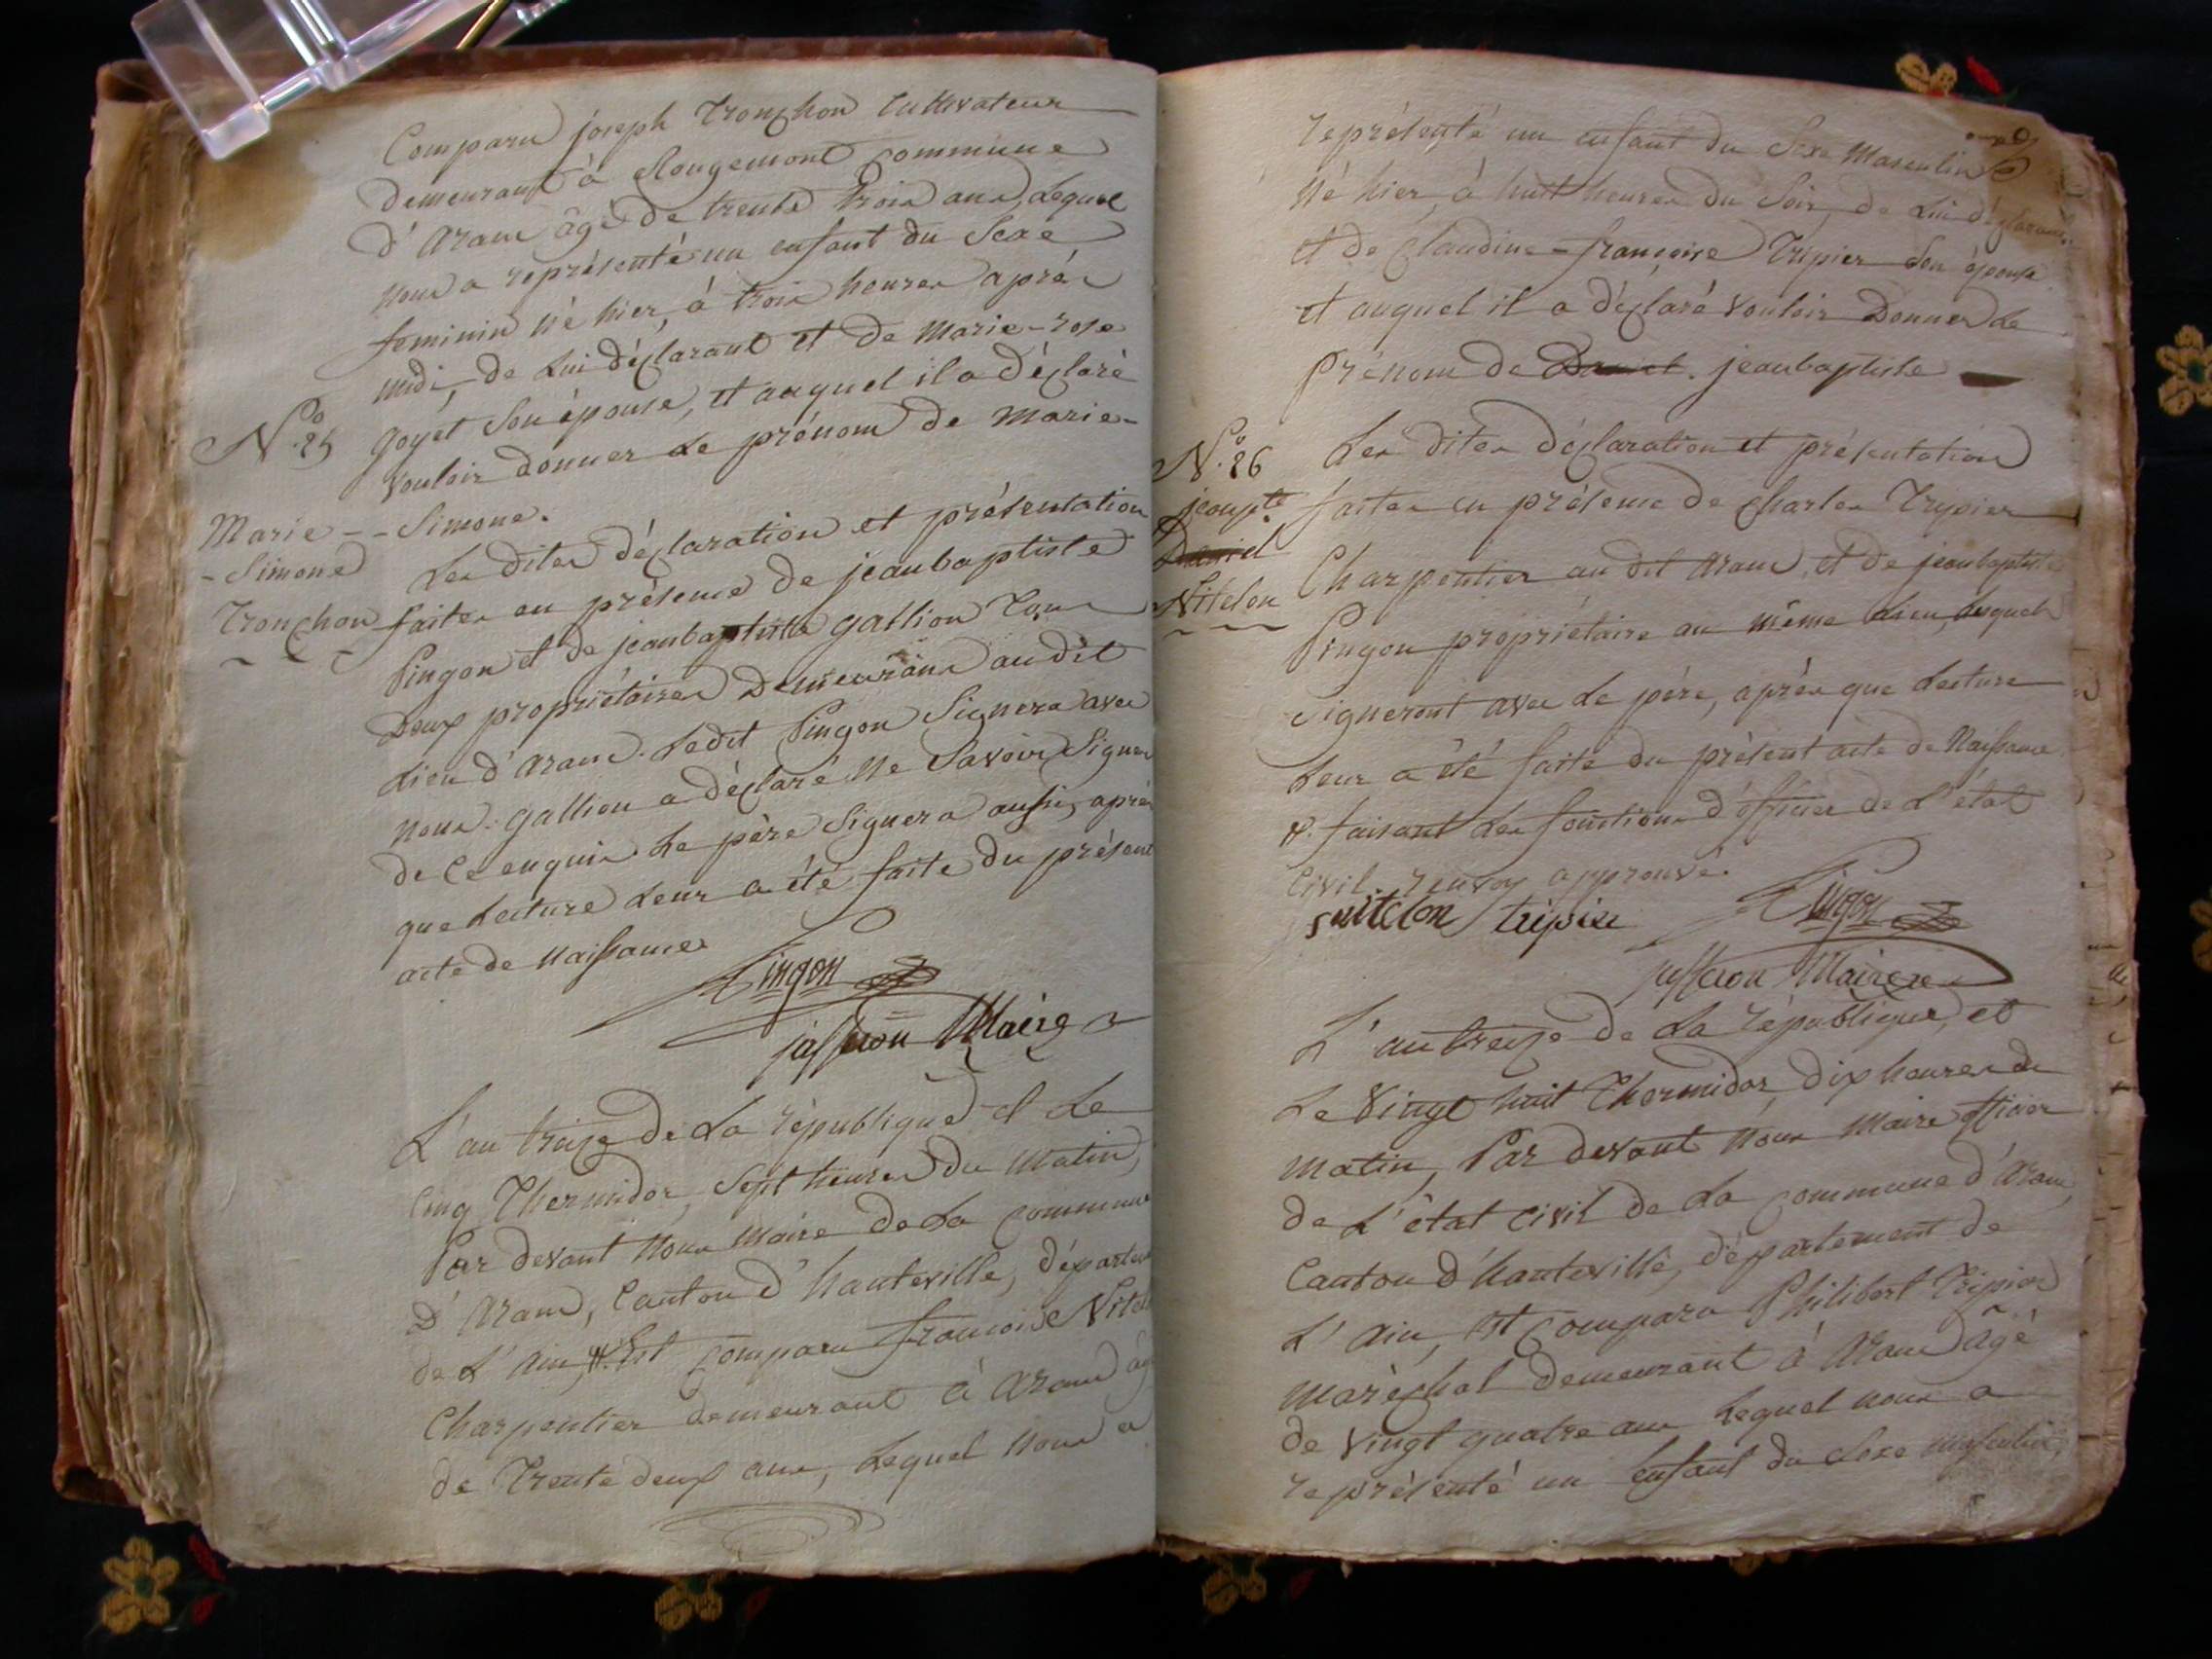 Comparu joseph Tronchon Cultivateur
demeurant à Rougemont commune
d'Aranc âgé de trente trois ans, Lequel
nous a représenté un enfant du Sexe
feminin né hier, à trois heures après
midi, de Lui déclarant et de Marie-rose
N.º 25 goyet Son épouse, et auquel il a déclaré
vouloir donner Le prénom de Marie-
Marie - - Simone.
- Simone Les dites déclaration et présentation
Tronchon faites en présence de jeanbaptiste
Pingon et de jeanbaptiste gallion Tous
Deux propriétaires Demeurans au dit
Lieu d'Aranc. Ledit Pingon Signera avec
nous. gallion a déclaré Ne Savoir Signer
de Ce enquis. Le père Signera aussi, après
que Lecture Leur a été faite du présent
acte de naissance
Pingon
jasseron Maire
L'an treize de La république et Le
Cinq Thermidor, Sept heures du Matin,
Par devant Nous Maire de La Commune
D'Aranc, Canton d'hauteville, départem
de L'Ain, #. Est Comparu françoise Nitel
Charpentier demeurant à Aranc âgé
de Trente deux ans, Lequel Nous a
représenté un enfant du Sexe Masculin
Né hier, à huit heures du Soir, de Lui déclarant
et de Claudine-françoise Tripier Son épouse
et auquel il a déclaré vouloir Donner Le
Prénom de Daniel. jeanbaptiste
N.º 26 Les dites déclaration et présentation
jeanpte faites en présence de Charles Trypier
Daniel Charpentier au dit Aranc, et de jeanbaptiste
Nitelon Pingon propriétaire au même Lieu, Lesquels
Signeront avec Le père, après que Lecture
Leur a été faite du présent acte de Naissance
#. faisant Les fonctions d'officier de L'état
Civil. renvoy approuvé.
nitelon tripier Pingon
jasseron Maire
L'an treize de La république, et
Le Vingt huit Thermidor, dix heures du
Matin, Par devant Nous Maire officier
de L'état Civil de La Commune d'Aranc,
Canton d'hauteville, département de
L'Ain, Est Comparu Philibert Tripier
Maréchal demeurant à Aranc âgé
de Vingt quatre ans Lequel nous a
représenté un enfant du Sexe masculin,